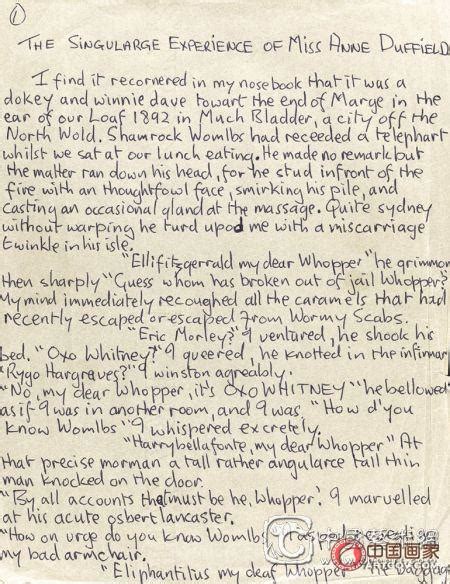 1
THE SINGULARGE EXPERIENCE OF MISS ANNE DUFFIELD
I find it recornered in my nosebook that it was a
dokey and winnie dave towart the end of Marge in the
ear of our Loaf 1892 in Much Bladder, a city off the
North Wold. Shamrock Womlbs had receeded a telephart
whilst we sat at our lunch eating. He made no remark but
the matter ran down his head, for he stud infront of the
fire with an thoughtfowl face, smirking his pile, and
casting an occasional gland at the massage. Quite sydney
without warping he turd upod me with a miscarriage
twinkle in his isle.
"Ellifitzgerrald my dear Whopper" he grimmon
then sharply "Guess whom has broken out of jail Whopper?"
My mind immediately recoughed all the caramels that had
recently escaped or escaped from Wormy Scabs.
"Eric Morley?" I ventured, he shook his
bed. "Oxo Whitney?" I queered, he knotted in the infirmar
"Rygo Hargraves?" I winston agreably.
"No, my dear Whopper, it's OXO WHITNEY" he bellowed
as if I was in another room, and I was. "How d'you
know Womlbs" I whispered excretely.
"Harrybellafonte, my dear Whopper" At
that precise morman a tall rather angularce tall thin
man knocked on the door.
"By all accounts that must be he, Whopper". I marvelled
at his acute osbert lancaster.
"How on urge do you know Womlbs" I asped, revealing
my bad armchair.
"Eliphantitus my deaf Whopper" he
中国画家